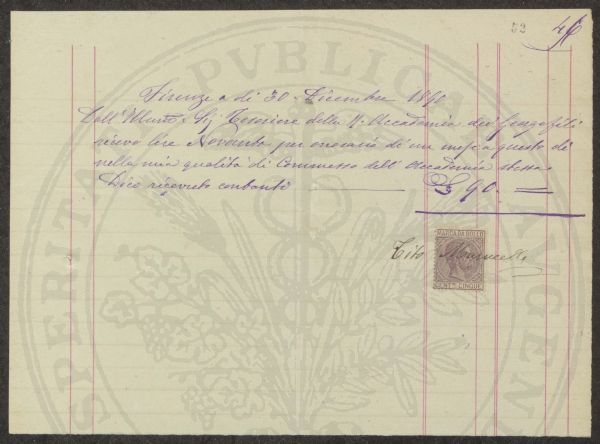 52 46
Firenze a di 30 Dicembre 1890
Dall' Illustre Sig. Tesoriere della R. Accademia dei Georgofili
ricevo lire Novanta per onorario di un mese a questo dì
nella mia qualità di Commesso dell' Accademia stessa
Dico ricevute contanti £ 90.=
MARCA DA BOLLO
Tito
CENT. CINQUE
PROSPERITATI PVBLICAE AVGENDAE